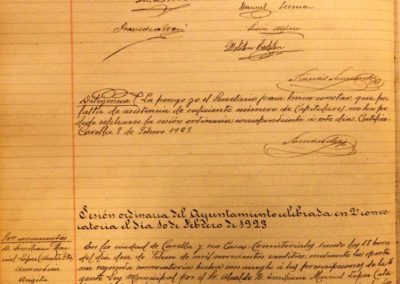 Manuel Serna
Francisco
León Alfaro
Melitón Catalán
Diligencia. La pongo yo el Secretario para hacer constar que por
falta de asistencia de suficiente número de Capitulares, no ha po-
dido celebrarse la sesión ordinaria correspondiente a este día. Certifico.
Corella 8 de Febrero 1923
Sesión ordinaria del Ayuntamiento celebrada en 2ª convo-
catoria el dia 10 de Febrero de 1923
Sres. concurrentes
D. Emiliano Mar-
cial López
En la ciudad de Corella y sus Casas Consistoriales siendo las 18 horas
del día diez de Febrero de mil novecientos veintitres, mediante la opor-
tuna segunda convocatoria hecha con arreglo a las prescripciones de la vi-
gente Ley Municipal por el Sr. Alcalde D. Emiliano Marcial López